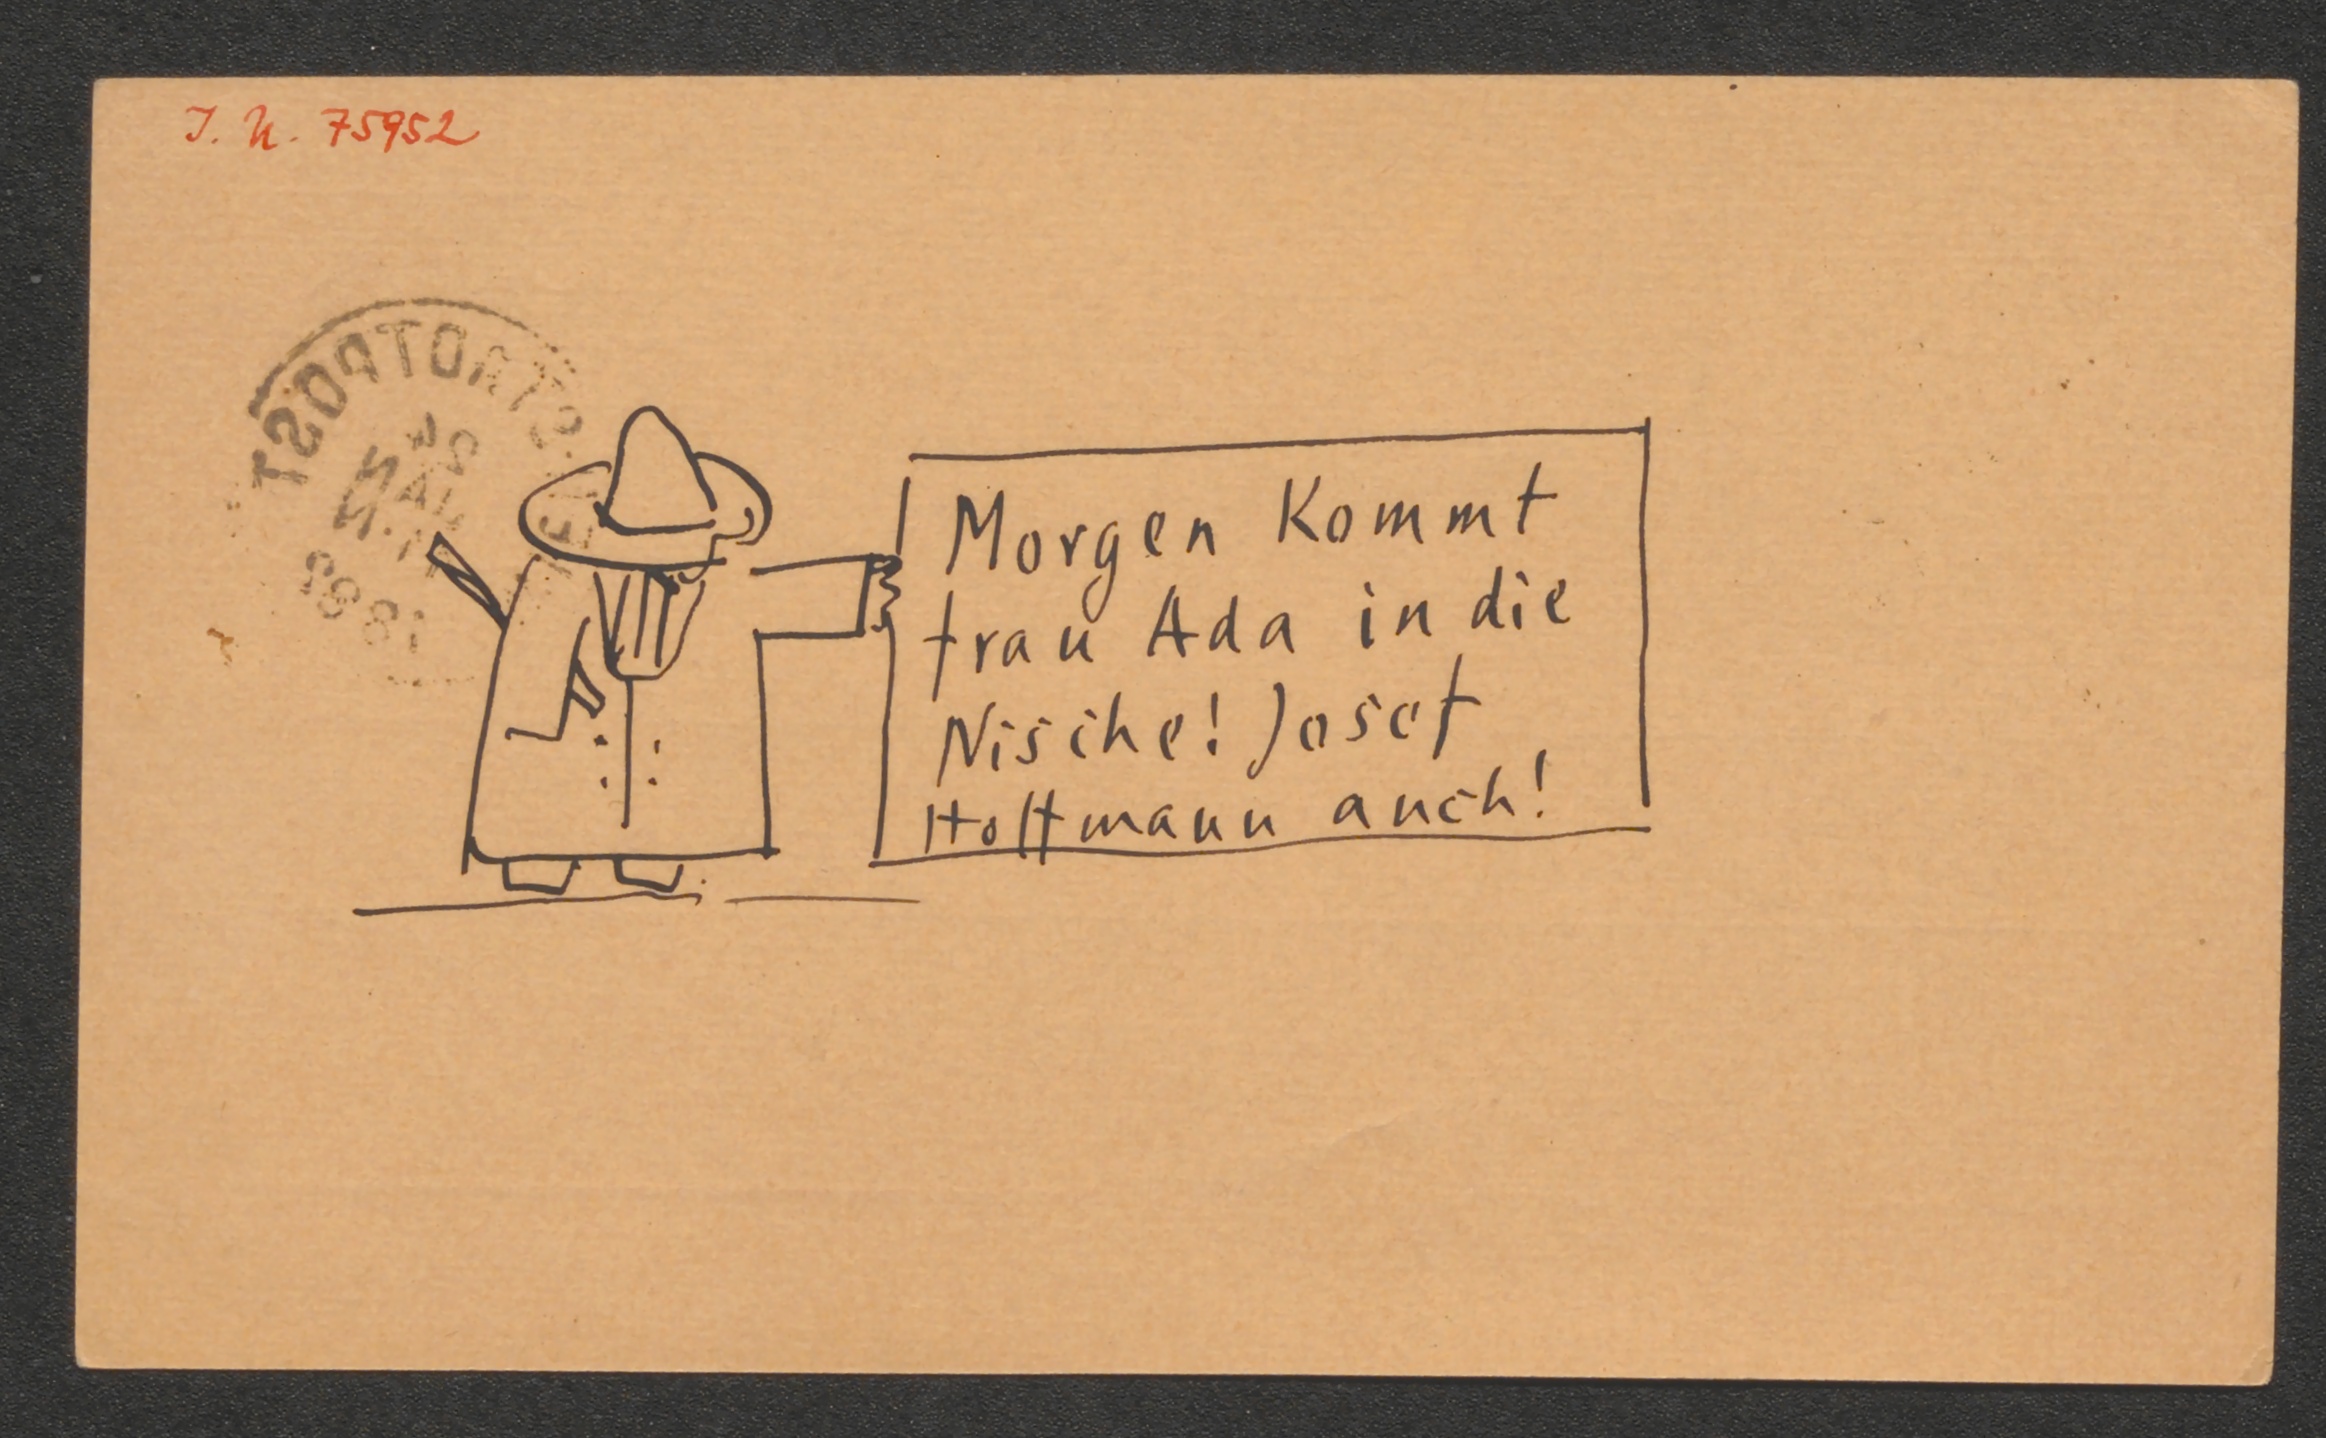 J. N. 75952
Morgen Kommt
frau Ada in die
Nische! Josef
Hoffmann auch!
STADTPOST
24